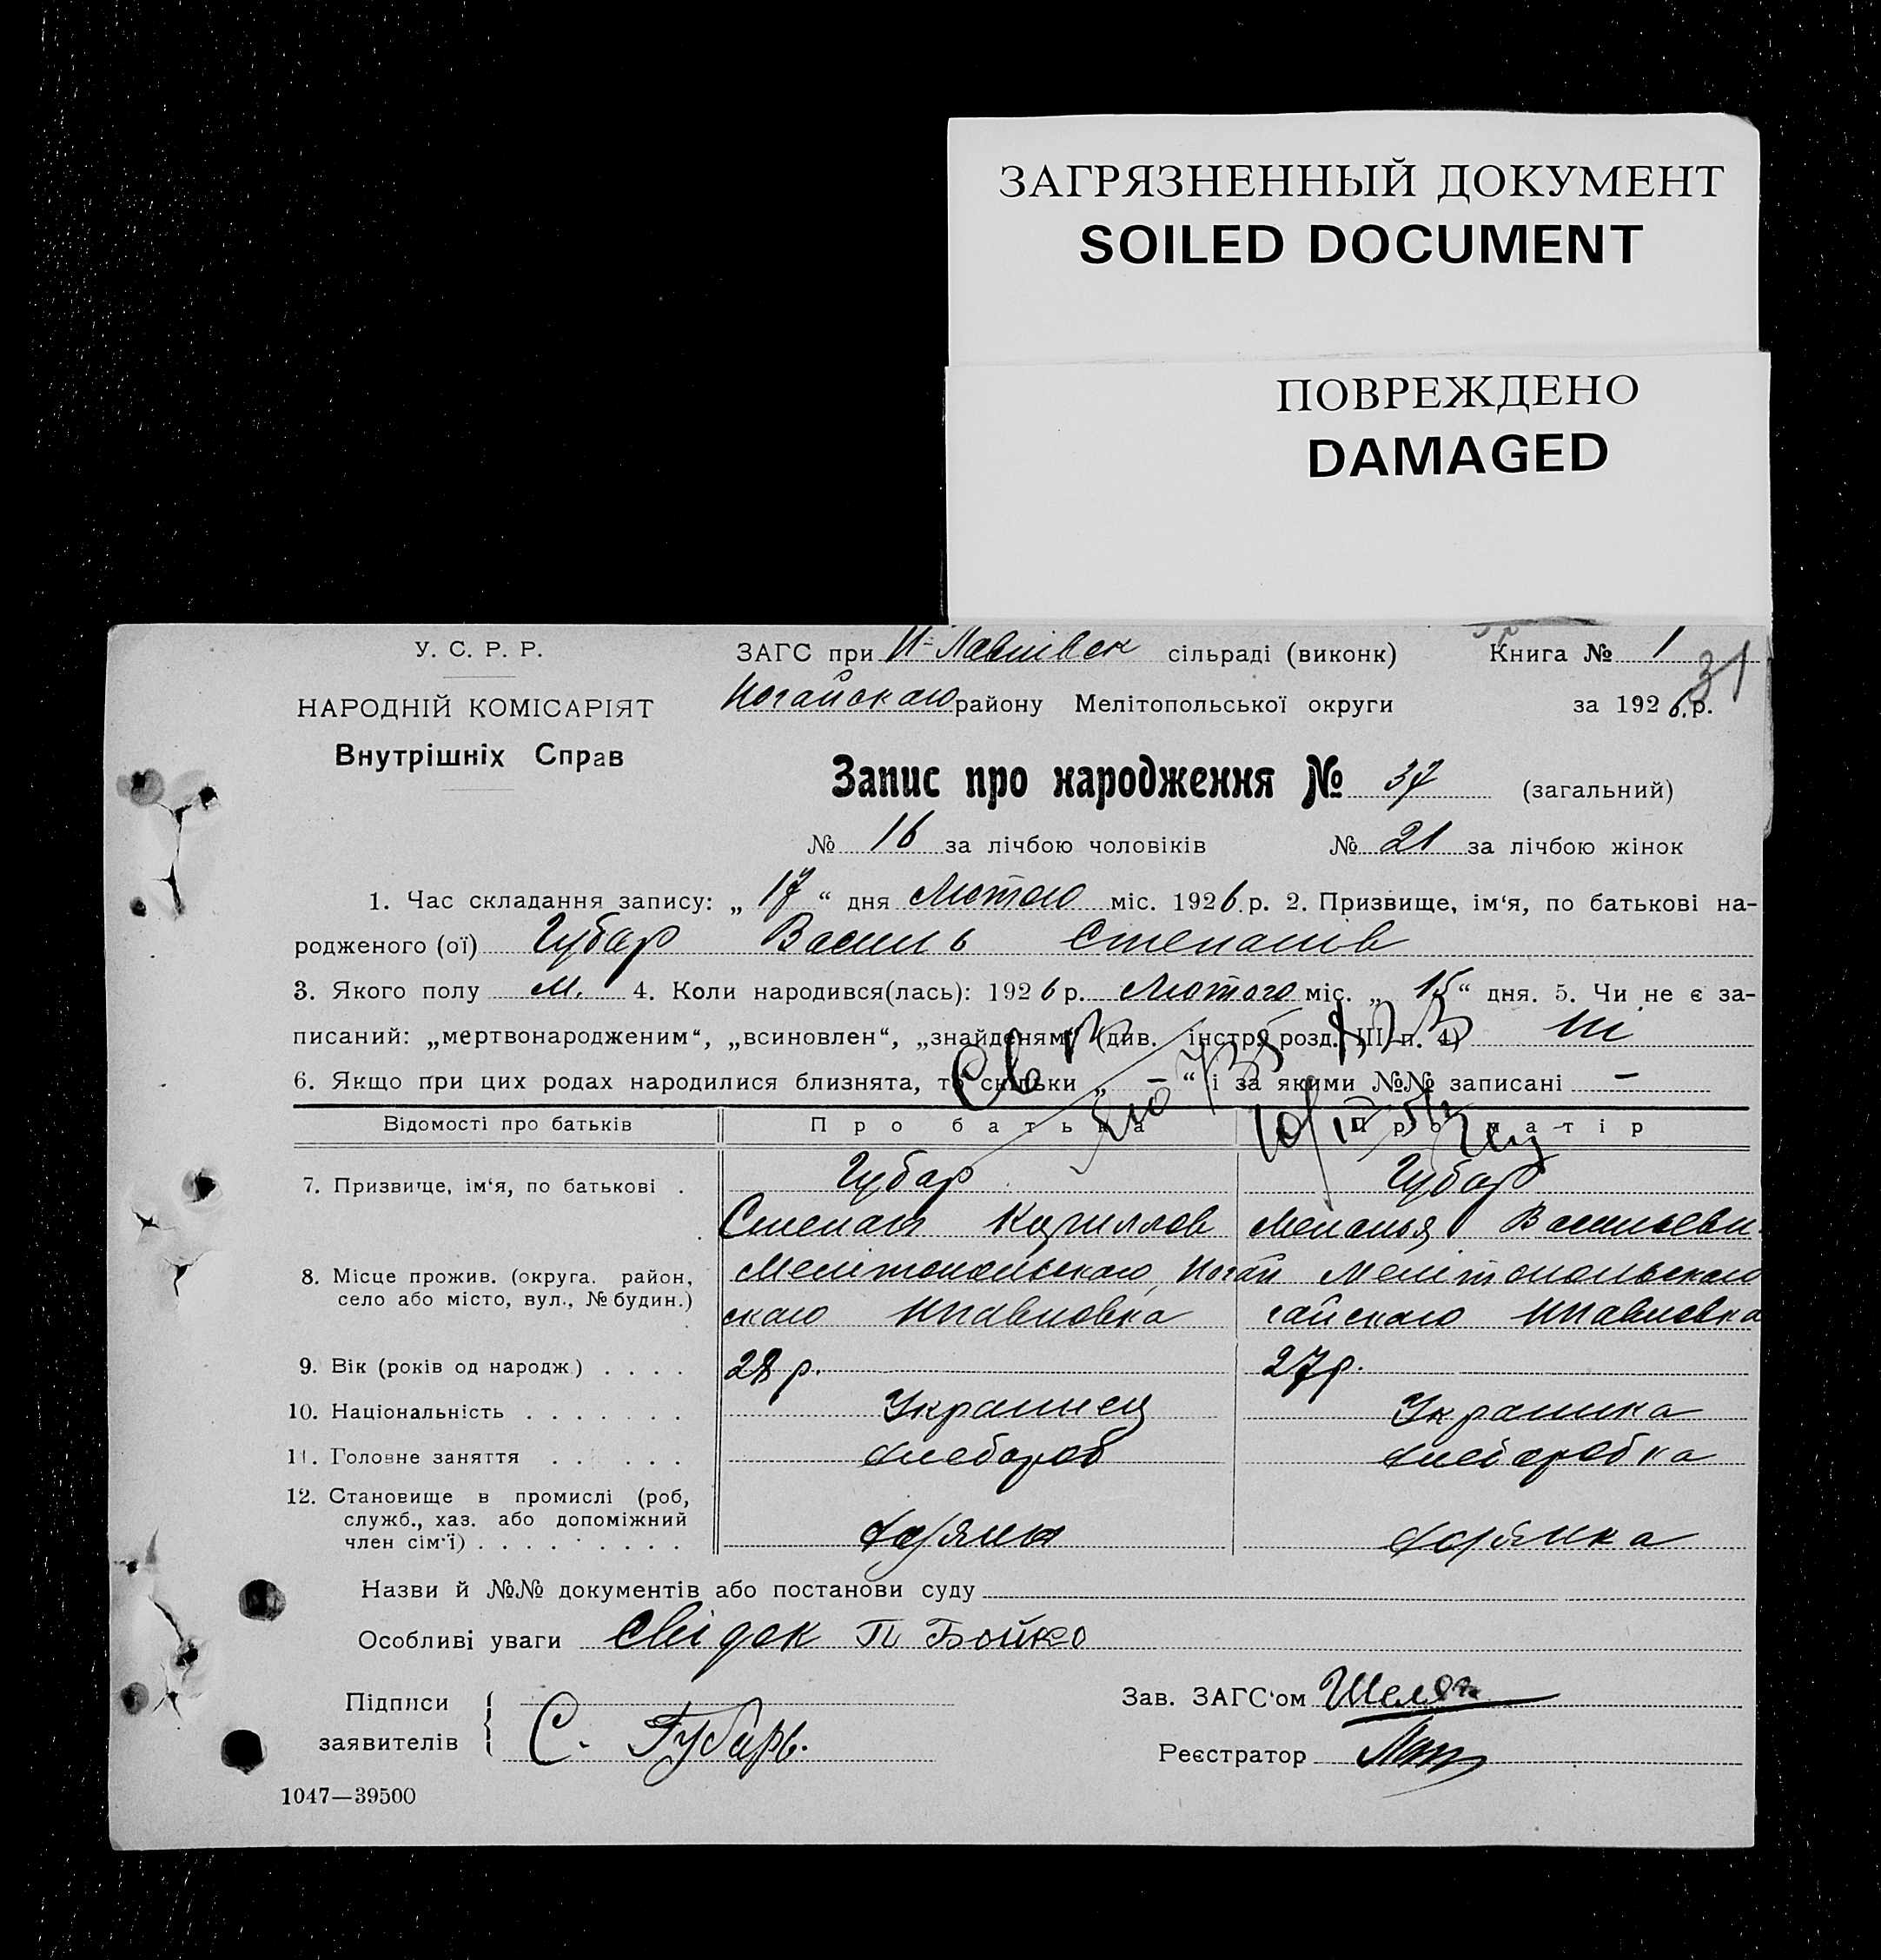 ЗАГРЯЗНЕННЫЙ ДОКУМЕНТ
SOILED DOCUMENT
ПОВРЕЖДЕНО
DAMAGED
У. С. Р. Р.
НАРОДНІЙ КОМІСАРІЯТ
Внутрішніх Справ
ЗАГС при Н-Павлівск сільраді (виконк)
Книга № 1
31
Ногайскаго району Мелітопольської округи
за 1926.р.
Запис про народження № 37 (загальний)
№ 16 за лічбою чоловіків № 21 за лічбою жінок
1. Час складання запису: „ 17 “ дня Лютого міс. 1926.р. 2. Призвище, ім‘я, по батькові на-
родженого (ої) Губар Василь Степанів
3. Якого полу м. 4. Коли народився(лась): 1926 р. Лютого міс. „ 15 “ дня. 5. Чи не є за-
писаний: „мертвонародженим“, „всиновлен“, „знайденям“ (див. інстр. розд. III п. 4) ні
6. Якщо при цих родах народилися близнята, то скільки „ – “ і за якими №№ записані –
Відомості про батьків
Про батька
Про матір
7. Призвище, ім‘я, по батькові .
Губар
Степан Кириллов
Губар
Меланья Васильевн.
8. Місце прожив. (округа. район,
село або місто, вул., № будин.)
Мелітопольскаго, Ногай
скаго НПавловка
Мелітопольскаго
гайскаго НПавловка
9. Вік (років од народж) . . . .
28 р.
27 р.
10. Національність . . . . . . .
Украинец
Украинка
11. Головне заняття . . . . . .
хлебороб
хлеборобка
12. Становище в промислі (роб,
служб., хаз. або допоміжний
член сім‘ї) . . . . . . . . .
Назви й №№ документів або постанови суду
Особливі уваги Свідок П Бойко
Підписи
заявителів
С. Губарь.
Зав. ЗАГС‘ом
Реєстратор
1047—39500